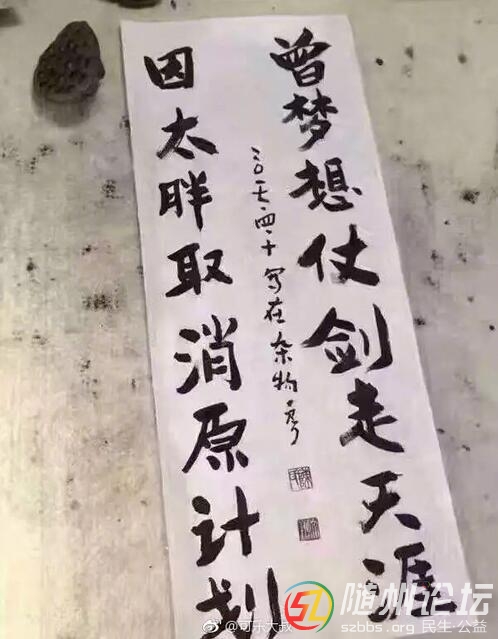 曾梦想仗剑走天涯
因太胖取消原计划
二〇一七·四·十 写在杂物房
@可乐大叔
随州论坛
szbbs.org 民生·公益